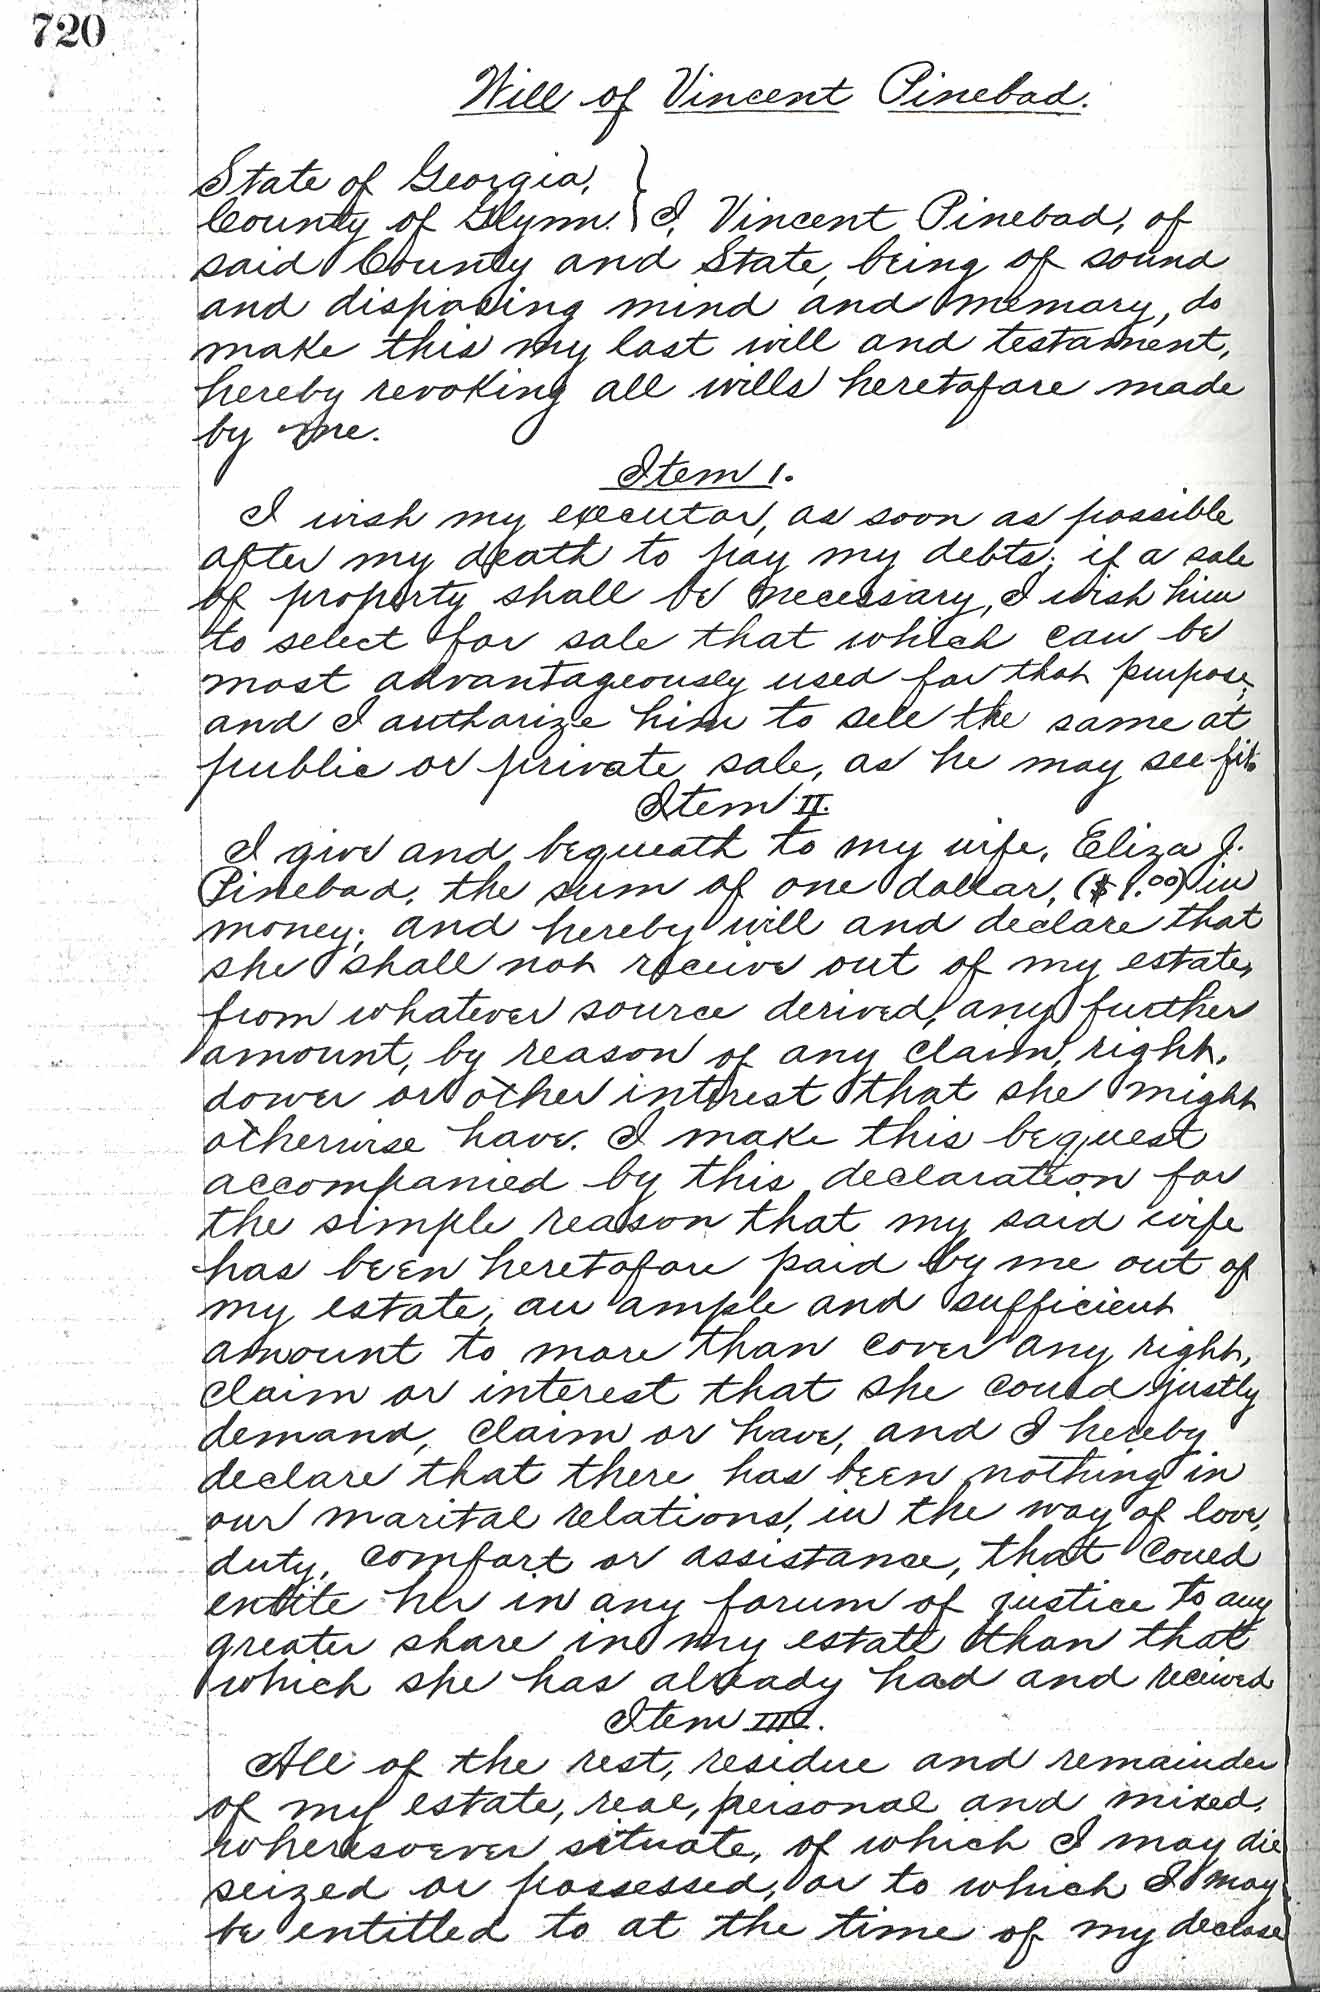 720
Will of Vincent Pinebad.
State of Georgia,
County of Glynn. } I, Vincent Pinebad, of
said County and State, being of sound
and disposing mind and memory, do
make this my last will and testament,
hereby revoking all wills heretofore made
by me.
Item 1.
I wish my executor, as soon as possible
after my death to pay my debts; if a sale
of property shall be necessary, I wish him
to select for sale that which can be
most advantageously used for that purpose,
and I authorize him to sell the same at
public or private sale, as he may see fit.
Item II.
I give and bequeath to my wife, Eliza J.
Pinebad, the sum of one dollar, ($1.00) in
money; and hereby will and declare that
she shall not receive out of my estate,
from whatever source derived, any further
amount, by reason of any claim, right,
dower or other interest that she might
otherwise have. I make this bequest
accompanied by this declaration for
the simple reason that my said wife
has been heretofore paid by me out of
my estate, an ample and sufficient
amount to more than cover any right,
claim or interest that she could justly
demand, claim or have, and I hereby
declare that there has been nothing in
our marital relations, in the way of love,
duty, comfort or assistance, that could
entite her in any forum of justice to any
greater share in my estate than that
which she has already had and received
Item III.
All of the rest, residue and remainder
of my estate, real, personal and mixed,
wheresoever situate, of which I may die
seized or possessed, or to which I may
be entitled to at the time of my decease